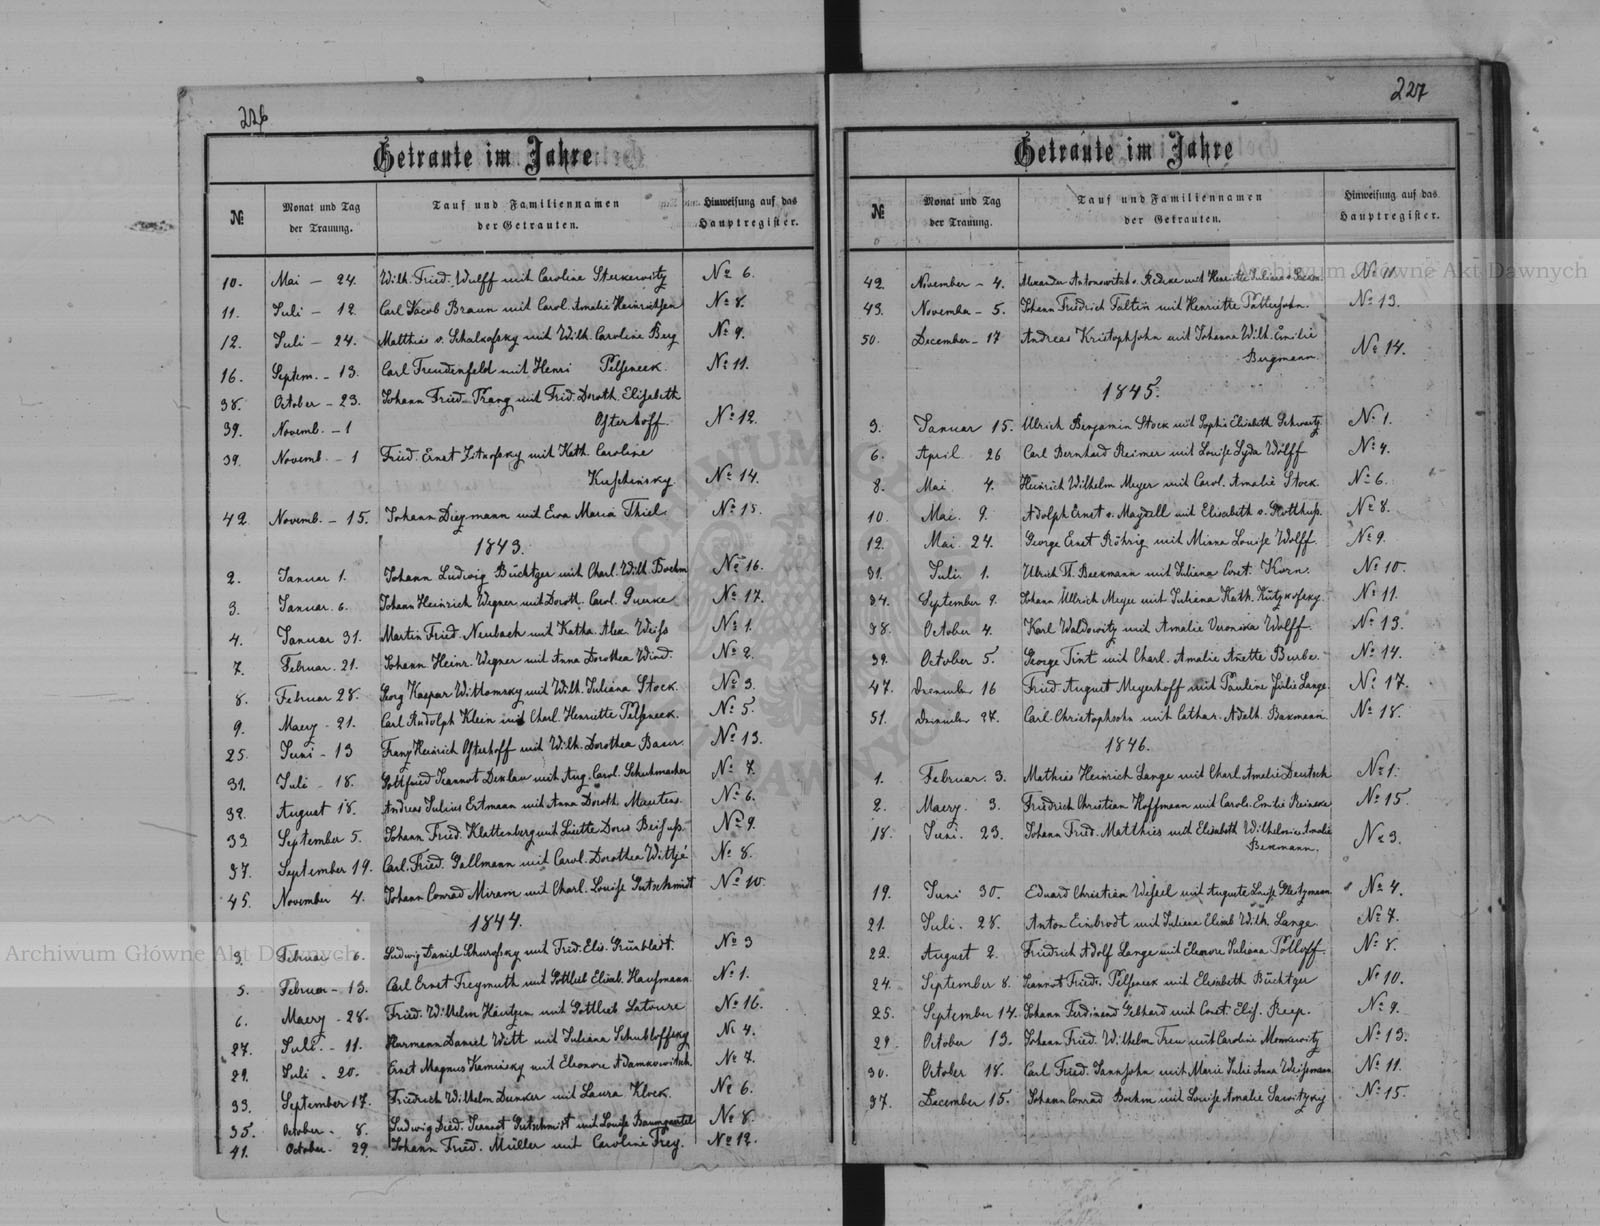 226
Getraute im Jahre
№ Monat und Tag der Trauung. Tauf und Familiennamen der Getrauten. Hinweisung auf das Hauptregister.
10. Mai - 24. Wilh. Fried. Wulff mit Caroline Sterkewitz № 6.
11. Juli - 12. Carl Jacob Braun mit Carol. Amalie Heinrichsen № 8.
12. Juli - 24. Matthias v. Schalkofsky mit Wilh. Caroline Berg № 9.
16. Septem. - 13. Carl Freudenfeld mit Henri Pelseneck. № 11.
38. October - 23. Johann Fried. Prang mit Frid. Doroth. Elisabeth
39. Novemb. - 1 Osterhoff. № 12.
39. Novemb. - 1 Fried. Ernst Zitkofsky mit Kath. Caroline
Kuschinsky № 14.
42. Novemb. - 15. Johann Diezmann mit Ewa Maria Thiel. № 15.
1843.
2. Januar 1. Johann Ludwig Büchtger mit Charl. Wilh. Boehm № 16.
3. Januar. 6. Johann Heinrich Wegner mit Doroth. Carol. Guerke № 17.
4. Januar 31. Martin Fried. Neubach mit Katha. Alex. Weiss № 1.
7. Februar. 21. Johann Heinr. Wegner mit Anna Dorothea Wind. № 2.
8. Februar 28. Georg Kaspar Withomsky mit Wilh. Juliana Stock. № 3.
9. Maerz - 21. Carl Rudolph Klein mit Charl. Henriette Pelseneck. № 5.
25. Juni - 13 Franz Heinrich Osterhoff mit Wilh. Dorothea Baur. № 13.
31. Juli - 18. Gottfried Jeannot Deklau mit Aug. Carol. Schuhmacher № 7.
32. August 18. Andreas Julius Ertmann mit Anna Doroth. Meutens. № 6.
33. September 5. Johann Fried. Klattenberg mit Lisette Doris Beifuss. № 9.
37. September 19. Carl. Fried. Gallmann mit Carol. Dorothea Wittje № 8.
45. November 4. Johann Conrad Miram mit Charl. Louise Gutschmidt № 10.
1844.
3. Februar - 6. Ludwig Daniel Schurofsky mit Frid. Elis. Grünbladt. № 3
5. Februar - 13. Carl Ernst Freymuth mit Gottlieb Elisab. Haufmann № 1.
6. Maerz - 28. Fried. Wilhelm Häntzen mit Gottlieb Latoure № 16.
27. Juli. - 11. Harmann Daniel Witt mit Juliana Schubloffsky № 4.
29. Juli - 20. Ernst Magnus Kaminsky mit Eleonore Adamkowitsch. № 7.
33. September 17. Friedrich Wilhelm Dunker mit Laura Klock. № 6.
35. October - 8. Ludwig Died. Jeannot Gutschmidt mit Louise Baumgartel № 8.
41. October - 29. Johann Fried. Müller mit Caroline Frey. № 12.
227
Getraute im Jahre
№ Monat und Tag der Trauung. Tauf und Familiennamen der Getrauten. Hinweisung auf das Hauptregister.
42. November - 4. Alexander Antonowitsch v. Redeke mit Henriette Juliana № 11
43. November - 5. Johann Friedrich Faltin mit Henriette Pättersohn. № 13.
50. December - 17 Andreas Kristophsohn mit Johanna Wilh. Emilie
Bergmann. № 14.
1845.
3. Januar 15. Ulrich Benjamin Stock mit Sophie Elisabeth Schwartz. № 1.
6. April 26 Carl Bernhard Reimer mit Louise Lyda Wolff № 4.
8. Mai 4. Heinrich Wilhelm Meyer mit Carol. Amalie Stock. № 6.
10. Mai. 9. Adolph Ernst v. Maydell mit Elisabeth v. Grotthuss. № 8.
12. Mai. 24. George Ernst Röhrig mit Minna Louise Wolff. № 9.
31. Juli. 1. Ulrich Th. Beekmann mit Juliana Const. Korn. № 10.
34. September 9. Johann Ullrich Meyer mit Juliana Kath. Kutzkofsky. № 11.
38. October 4. Karl Waldowitz mit Amalie Veronika Wolff. № 13.
39. October 5. George Tint mit Charl. Amalie Anette Burbe. № 14.
47. December 16 Fried. August Meyerhoff mit Pauline Julie Lange. № 17.
51. December 27. Carl Christophsohn mit Cathar. Adelh. Baxmann. № 18.
1846.
1. Februar. 3. Mathias Heinrich Lange mit Charl. Amelie Deutsch № 1.
2. Maerz. 3. Friedrich Christian Hoffmann mit Carol. Emilie Reineke № 15.
18. Juni. 23. Johann Fried. Matthies mit Elisabeth Wilhelmine Amalie
Bekmann. № 3.
19. Juni 30. Eduard Christian Wessel mit Auguste Louise Gletzmann № 4.
21. Juli. 28. Anton Einbrodt mit Juliana Elisab Wilh. Lange. № 7.
22. August 2. Friedrich Adolf Lange mit Eleanore Juliana Potloff. № 8.
24. September 8. Jeannot Fried. Pelseneck mit Elisabeth Büchtger № 10.
25. September 14. Johann Ferdinand Gebhard mit Const. Elis. Reep. № 9.
29. October 13. Johann Fried. Wilhelm Treu mit Caroline Monkewitz № 13.
30. October 18. Carl Fried. Jannsohn mit Marie Julie Anna Weissmann № 11.
37. December 15. Johann Conrad Boehm mit Louise Amalie Sawitzky № 15.
Archiwum Główne Akt Dawnych
Archiwum Główne Akt Dawnych